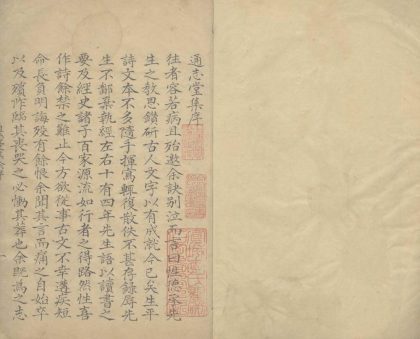 通志堂集序
往者容若病且殆邀余訣別泣而言曰性德承先
生之教思鑽研古人文字以有成就今已矣生平
詩文本不多隨手揮寫輒復散佚不甚存錄辱先
生不鄙棄執經左右十有四年先生語以讀書之
要及經史諸子百家源流如行者之得路然性喜
作詩餘禁之難止今方欲從事古文不幸遘疾短
命長負明誨歿有餘恨余聞其言而痛之自始卒
以及殯阼臨其喪哭之必慟其葬也余既為之志